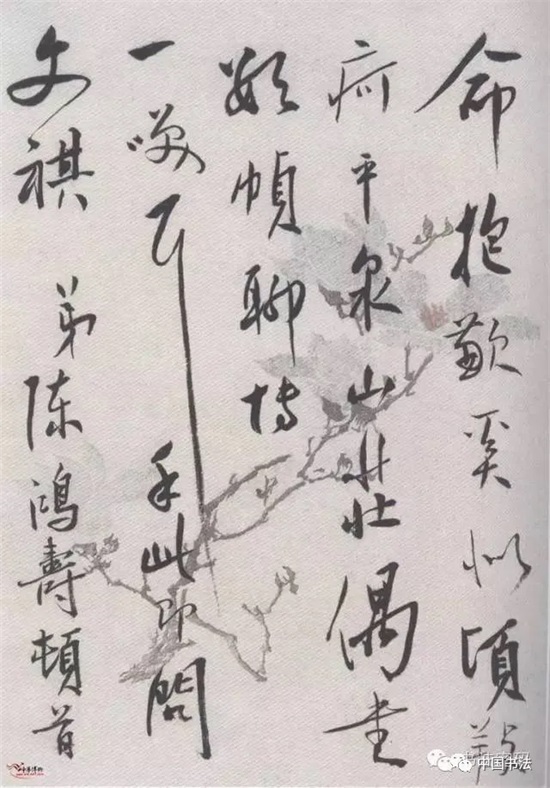 命抱歉奚似頃
疴平泉山莊偶畫
數幀聊博
一笑耳 手此即問
文祺 弟陳鴻壽頓首
中国书法